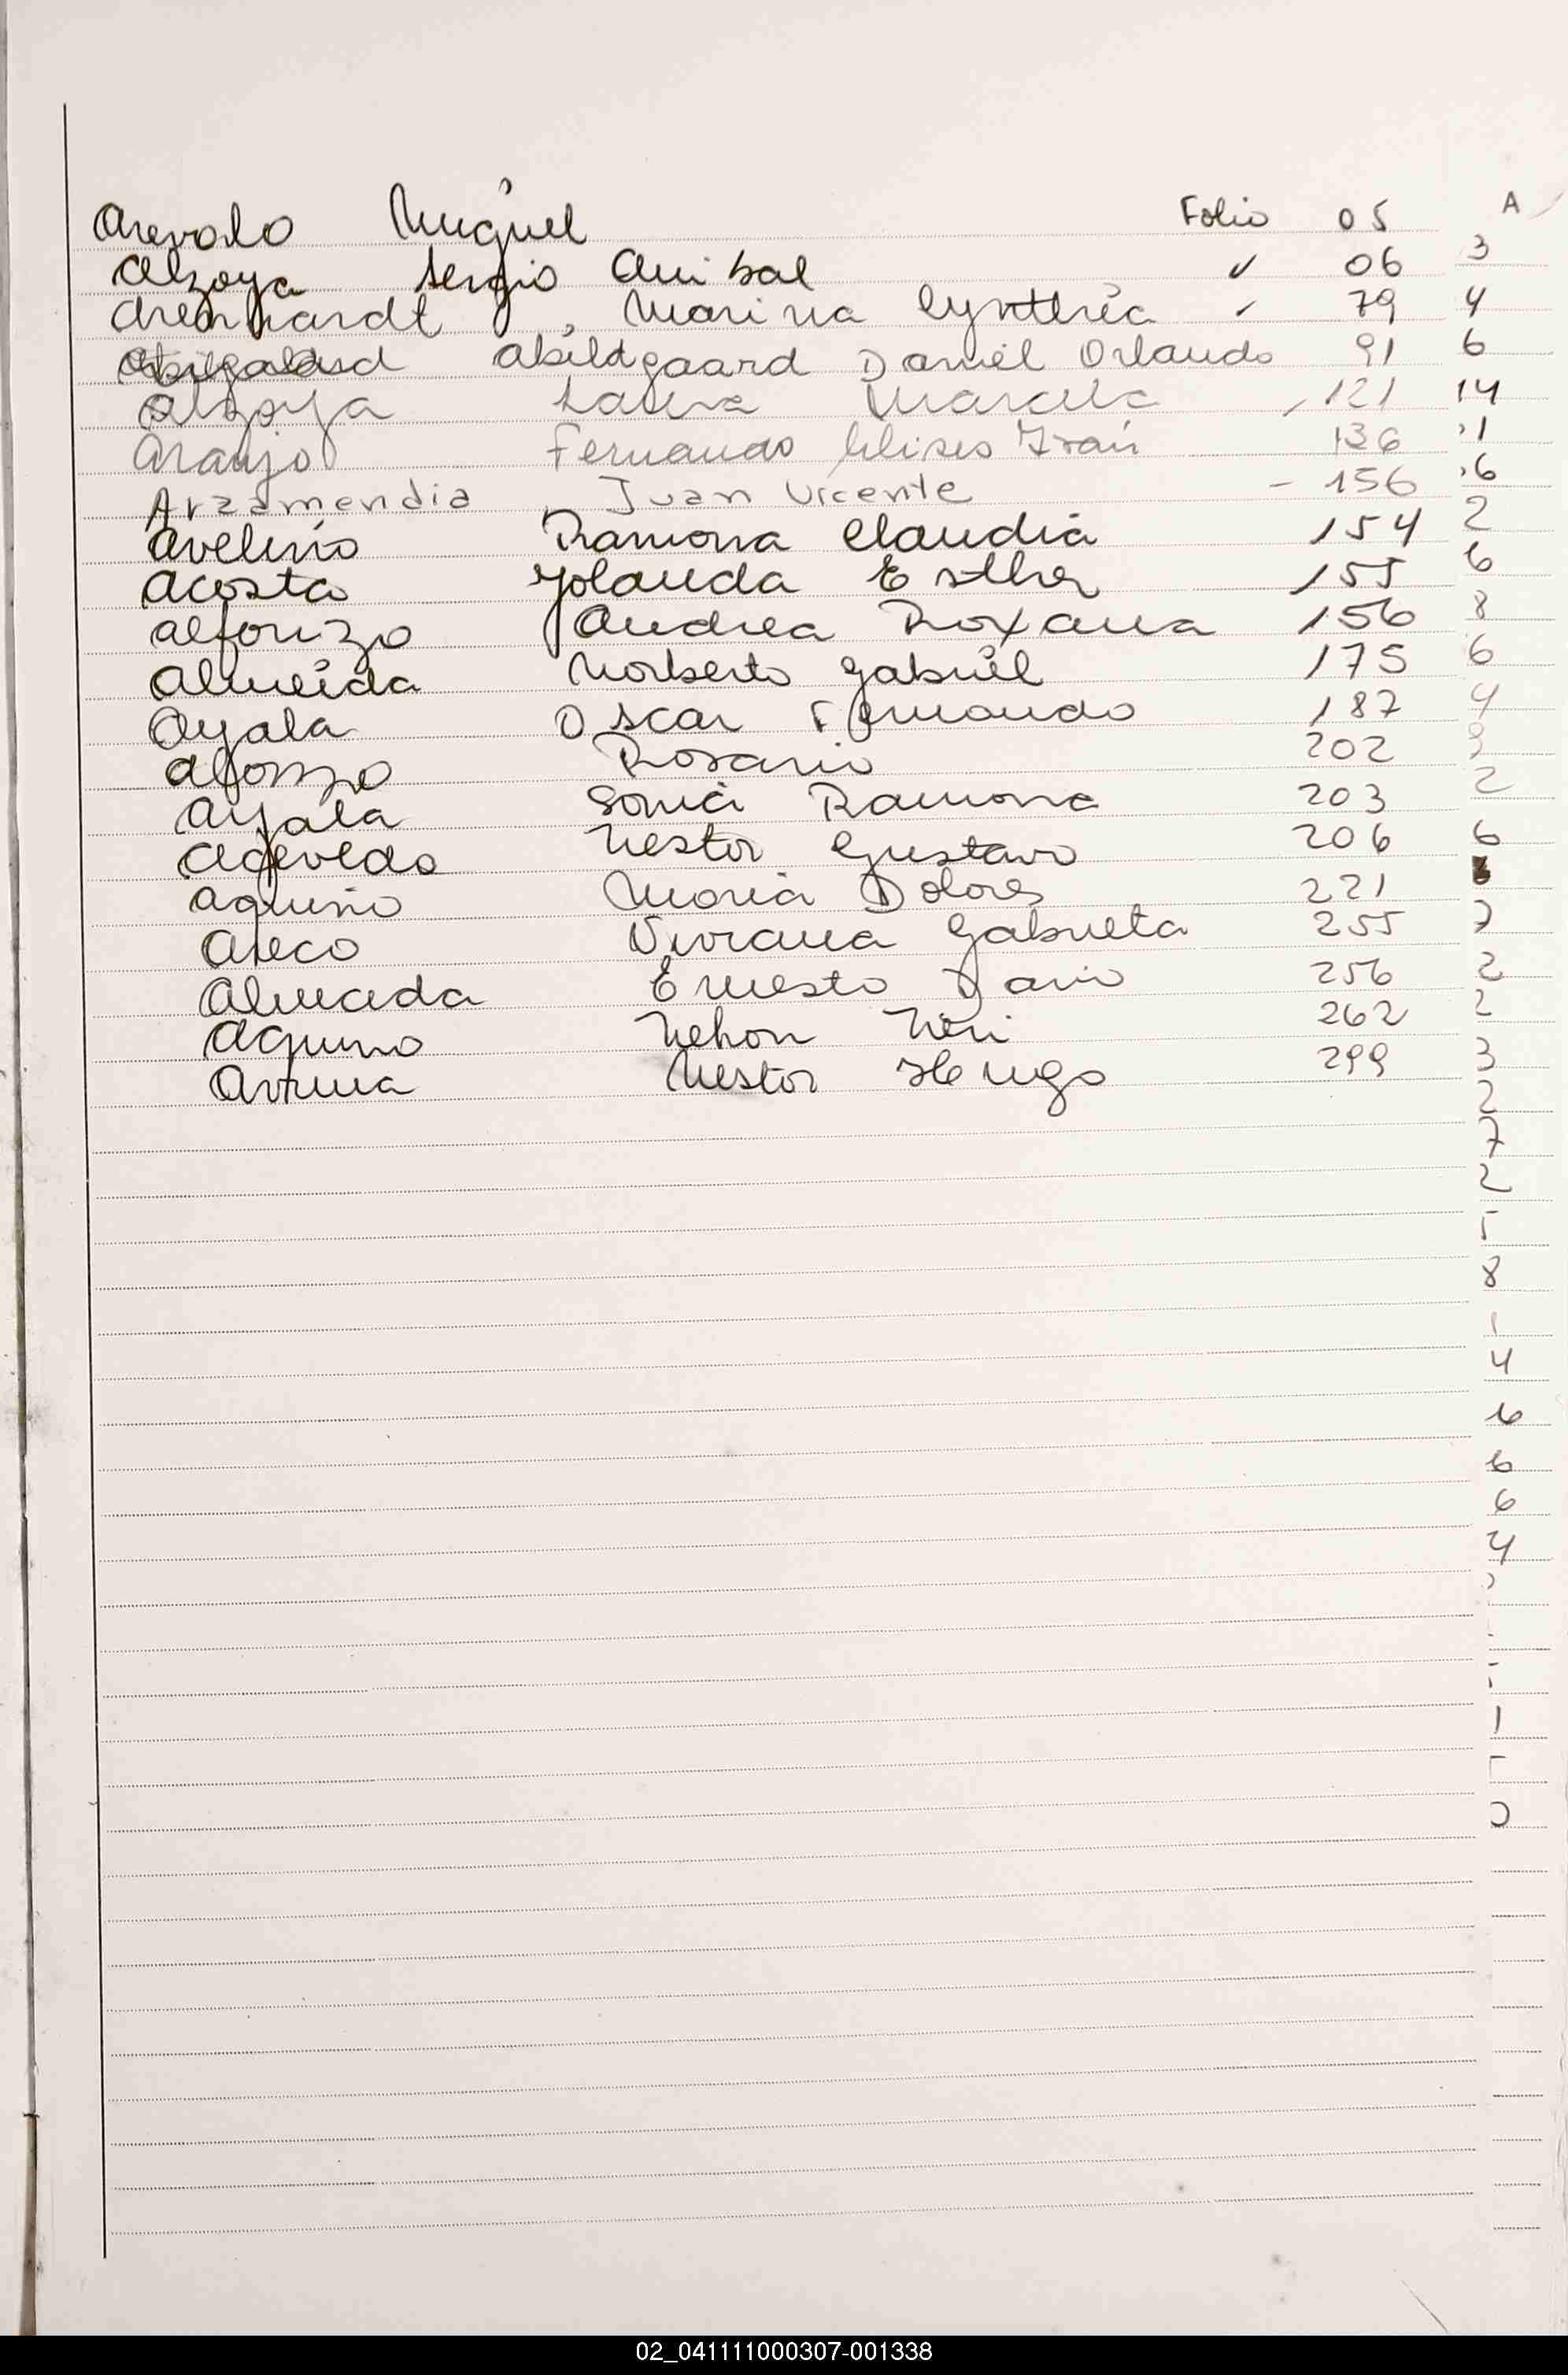 Arevalo Miguel Folio 05 A
Alzoya Sergio Anibal 06 3
Arenhardt, Marina Cynthia 79 4
Abildgaard Daniel Orlando 91 6
Alzoya Laura Marcela 121 14
Araujo Fernando Ulises Iran 136 1
Arzamendia Juan Vicente - 156 6
Avelino Ramona Claudia 154 2
Acosta Yolanda Esther 155 6
Alfonzo Andrea Roxana 156 8
Almeida Norberto Gabriel 175 6
Ayala Oscar Fernando 187 4
Alfonzo Rosario 202
Ayala Sonia Ramona 203 2
Acevedo Nestor Gustavo 206 6
Aquino Maria Dolores 221
Areco Viviana Gabriela 255 7
Almada Ernesto Dario 256 2
Aquino Nelson Neri 262 2
Nestor Hugo 299 3
2
7
2
5
8
1
4
6
6
6
4
1
02_041111000307-001338